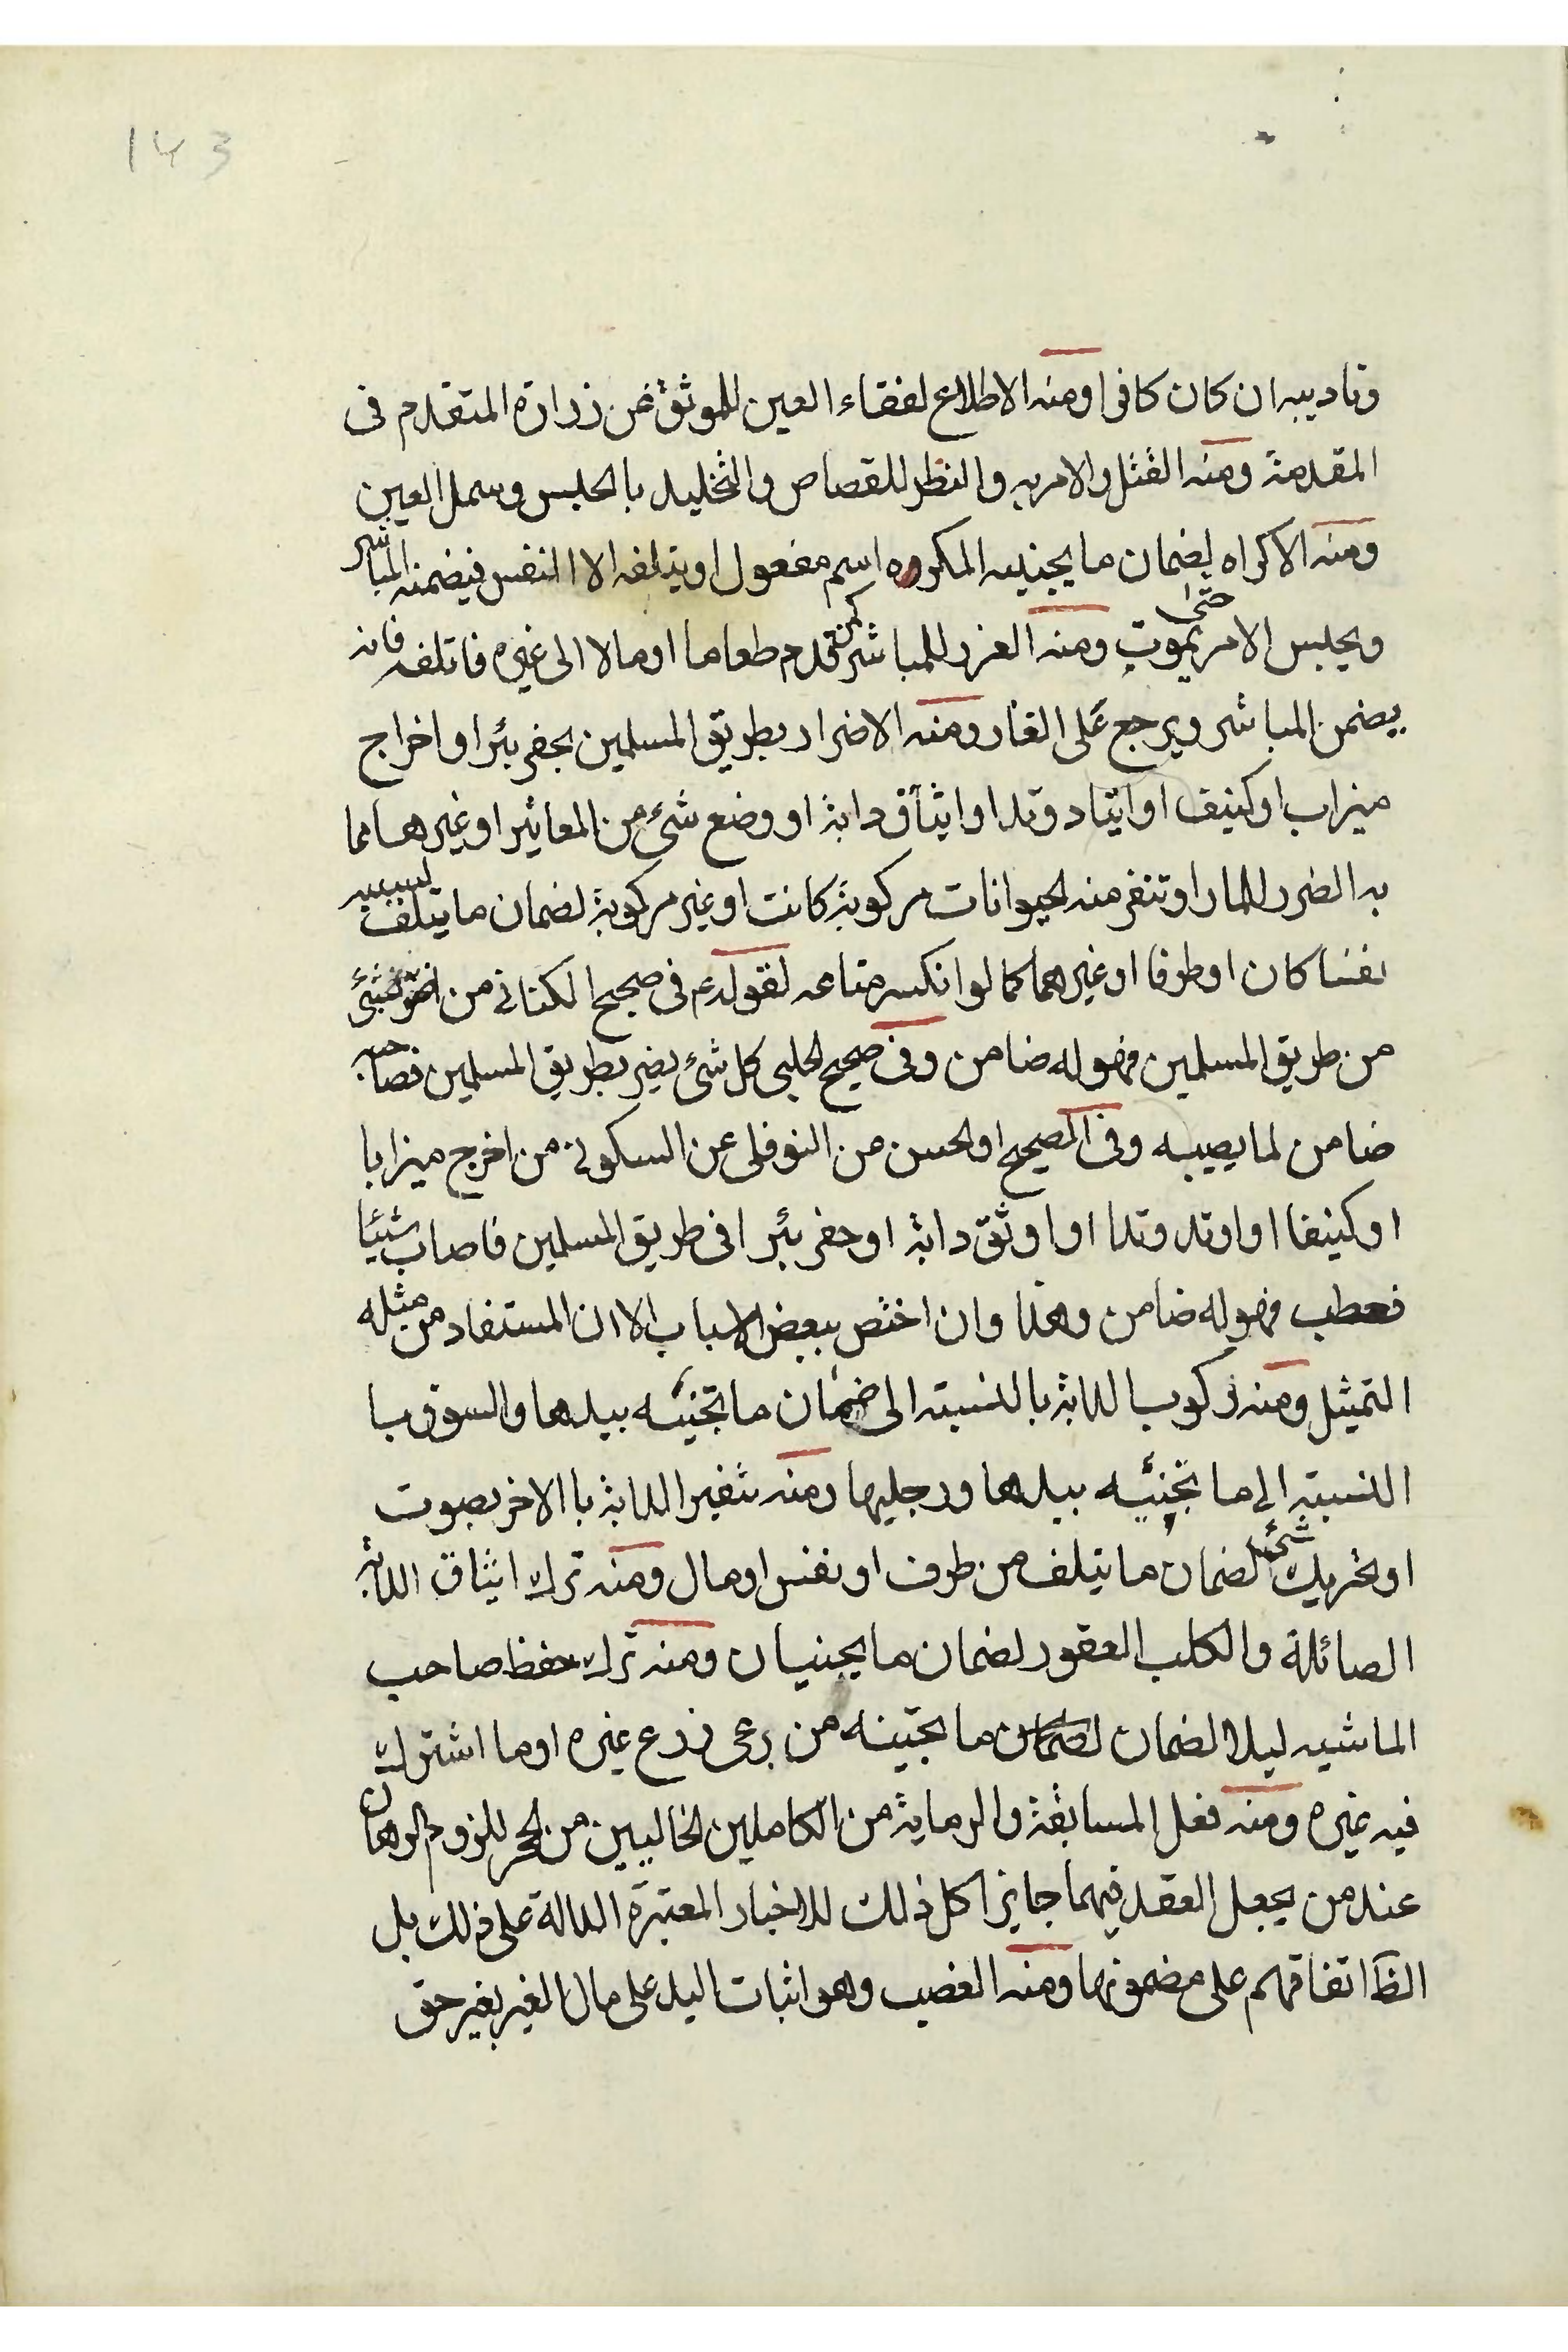 143
وتاديبه ان كان كافرا ومنه الاطلاع لفقاء العين للموثق عن زرارة المتقدم فى
المقدمة ومنه القتل والامر به والنظر للقصاص والتخليد بالحبس وسمل العين
ومنه الاكراه لضمان ما يجنيه المكروه اسم مفعول او يتلفه الا النفس فيضمنه المباشر
ويحبس الامر حتى يموت ومنه الغرر للمباشر كمن قدم طعاما او مالا الى غيره فاتلفه فانه
يضمن المباشر ويرجع على الغار ومنه الاضرار بطريق المسلمين بحفر بئر او اخراج
ميزاب او كنيف او ايتاد وتدا او ايثاق دابة او وضع شئ من المعاثير او غيرها مما
به الضرر للمار او تنفر منه الحيوانات مركوبة كانت او غير مركوبة لضمان ما يتلف بسببه
نفسا كان او طرفا او غيرهما كما لو انكسر متاعه لقوله ع فى صحيح الكنانى من اضر بشئ
من طريق المسلمين فهو له ضامن وفى صحيح الحلبى كل شئ يضر بطريق المسلمين فصاحبه
ضامن لما يصيبه وفى الصحيح او الحسن عن النوفلى عن السكونى من اخرج ميزابا
او كنيفا او اوتد وتدا او اوثق دابة او حفر بئرا فى طريق المسلمين فاصاب شيئا
فعطب فهو له ضامن وهذا وان اختص ببعض الاسباب الا ان المستفاد من مثله
التمثيل ومنه ركوب الدابة بالنسبته الى ضمان ما تجنيه بيدها والسوق با
النسبته الى ما تجنيه بيدها ورجليها ومنه تنفير الدابة با الاخر بصوت
او تحريك شئ لضمان ما يتلف من طرف او نفس او مال ومنه ترك ايثاق الدابة
الصائلة والكلب العقور لضمان ما يجنيان ومنه ترك حفظ صاحب
الماشيه ليلا لضمان لضمان ما تجنيه من رعى زرع غيره او ما اشترك
فيه غيره ومنه فعل المسابقة والرماية من الكاملين الخاليين من الحجر للزوم الرهان
عند من يجعل العقد فيهما جايزا كل ذلك للاخبار المعتبرة الدالة على ذلك بل
الظ اتفاقهم على مضمونها ومنه الغصب وهو اثبات اليد على مال الغير بغير حق